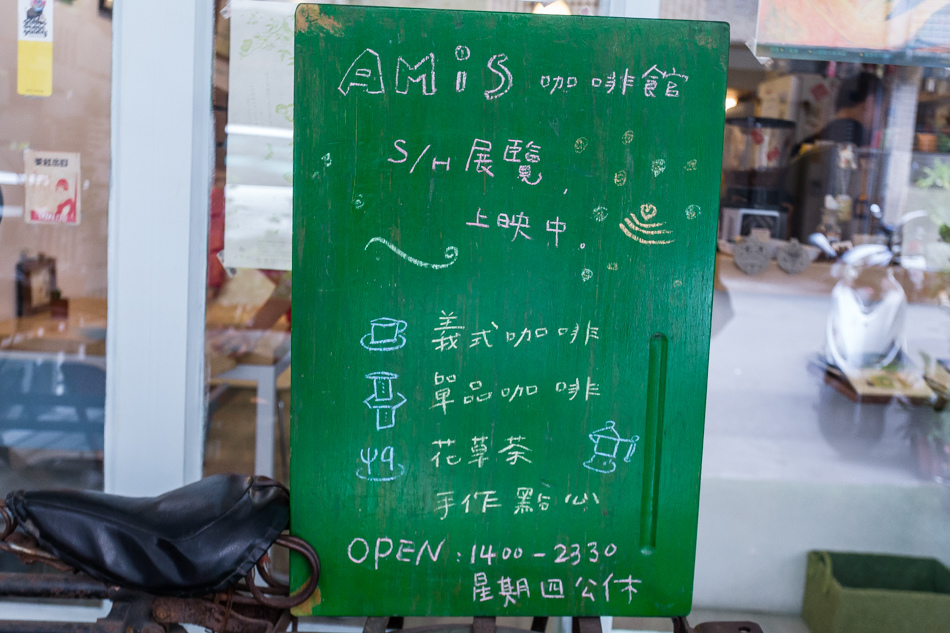 AMiS 咖啡館
S/H 展覽,
上映中。
義式咖啡
單品咖啡
花草茶
手作點心
OPEN:1400-2330
星期四公休